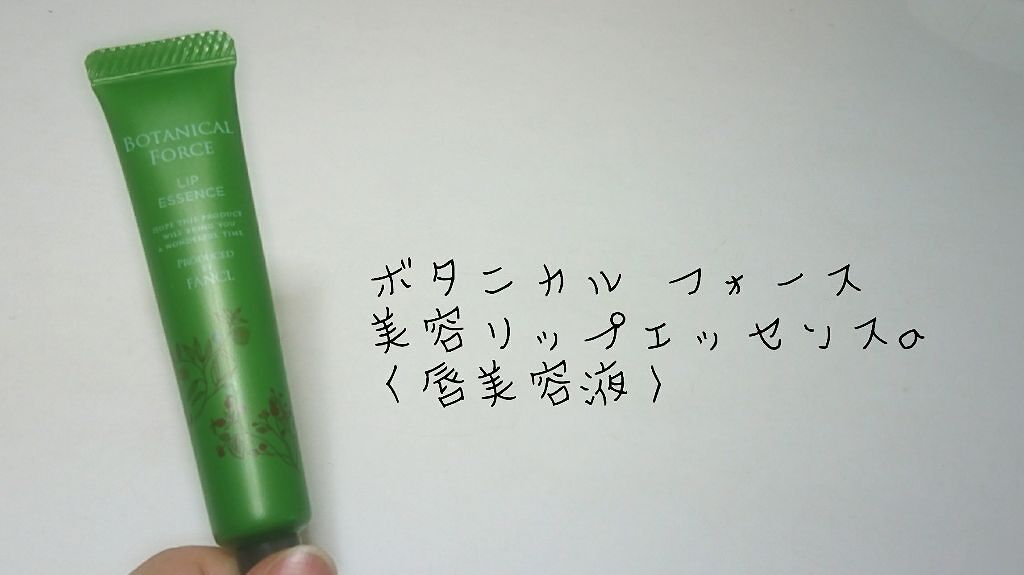 BOTANICAL
FORCE
LIP
ESSENCE
HOPE THIS PRODUCT
WILL BRING YOU
A WONDERFUL TIME
PRODUCED
BY
FANCL
ボタニカル フォース
美容リップエッセンス。
〈唇美容液〉